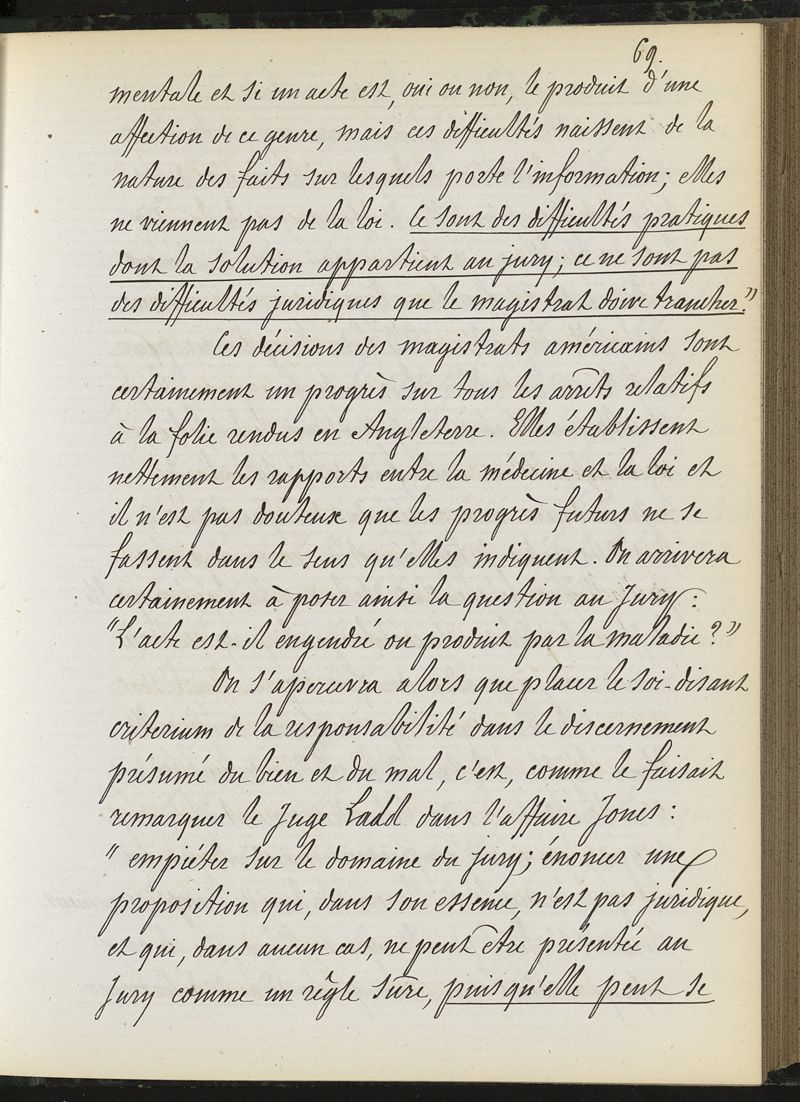 69.
mentale et si un acte est, oui ou non, le produit d'une
affection de ce genre, mais ces difficultés naissent de la
nature des faits sur lesquels porte l'information; elles
ne viennent pas de la loi. Ce sont des difficultés pratiques
dont la solution appartient au jury; ce ne sont pas
des difficultés juridiques que le magistrat doive trancher."
Ces décisions des magistrats américains sont
certainement un progrès sur tous les arrêts relatifs
à la folie rendus en Angleterre. Elles établissent
nettement les rapports entre la médecine et la loi et
il n'est pas douteux que les progrès futurs ne se
fassent dans le sens qu'elles indiquent. On arrivera
certainement à poser ainsi la question au Jury:
"L'acte est-il engendré ou produit par la maladie?"
On s'apercevra alors que placer le soi-disant
criterium de la responsabilité dans le discernement
présumé du bien et du mal, c'est, comme le faisait
remarquer le Juge Ladd dans l'affaire Jones:
" empiéter sur le domaine du jury; énoncer une
proposition qui, dans son essence, n'est pas juridique,
et qui, dans aucun cas, ne peut être présentée au
Jury comme un règle sûre, puisqu'elle peut se